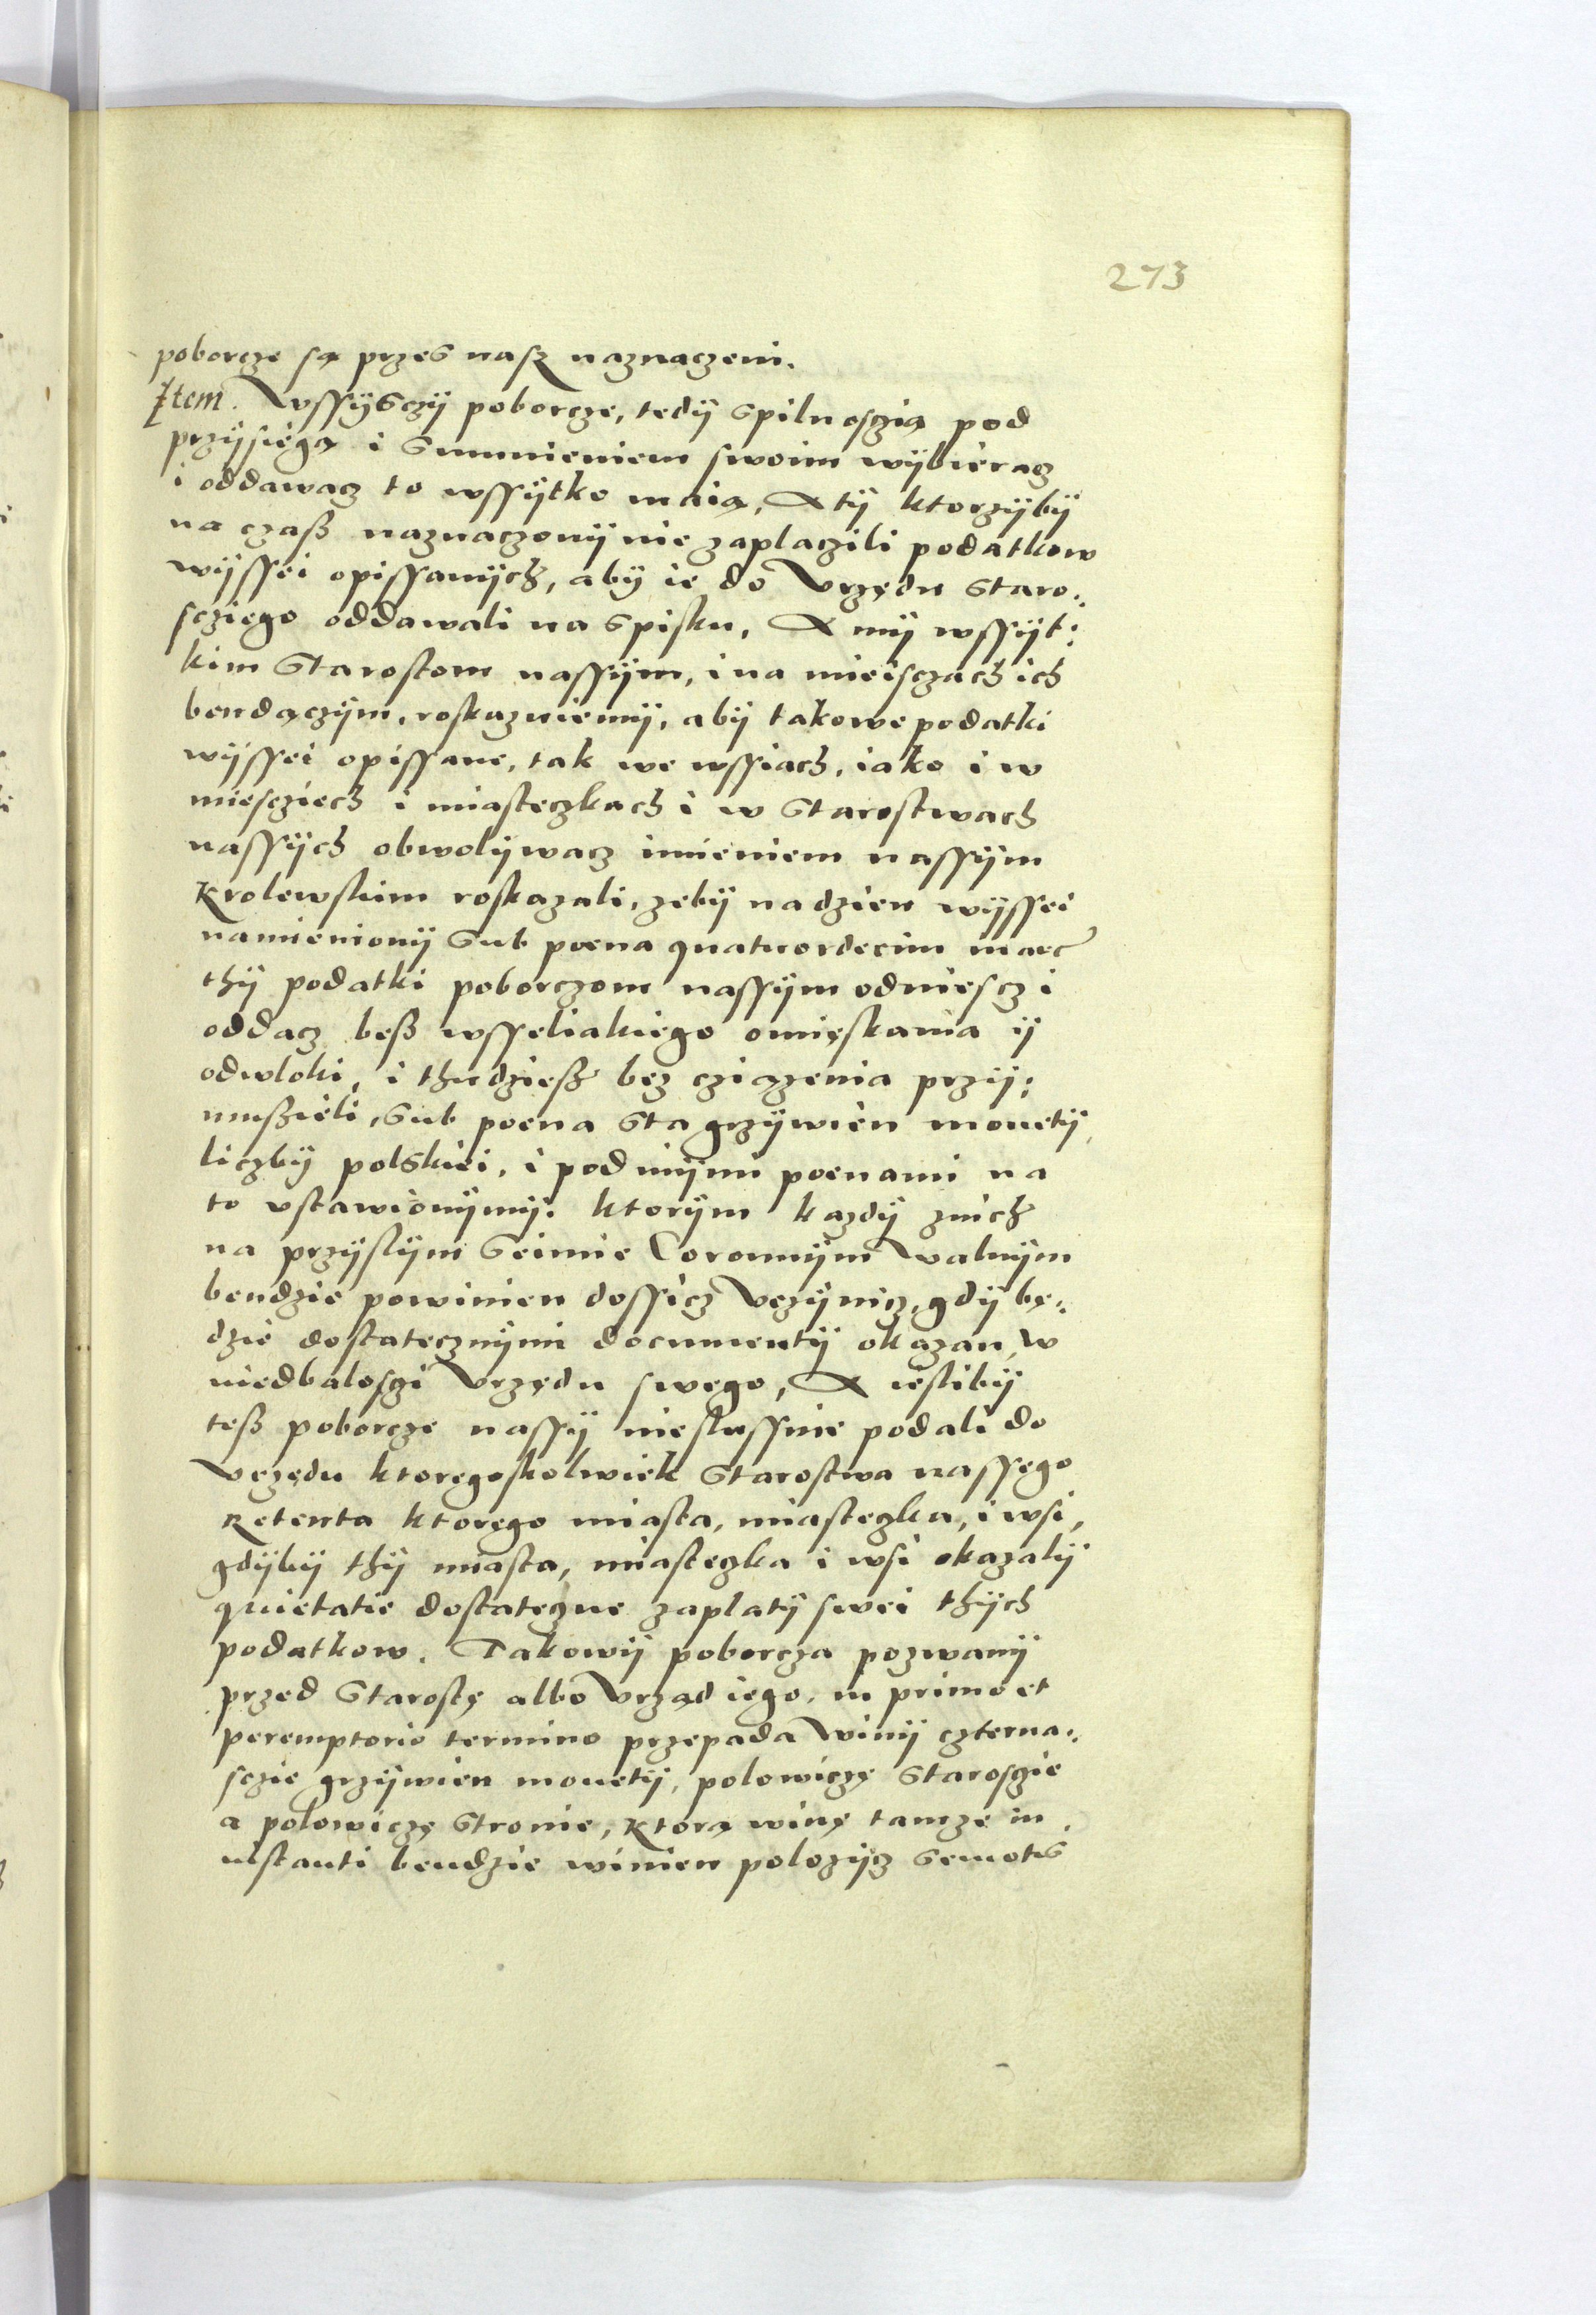 273
poborcze są przes nasz naznaczeni.
Item. Wssÿsczÿ poborcze, tedÿ spilnosczią pod
przÿsięgą i sumnieniem swoim wÿbieracz
i oddawacz to wssÿtko maią, A tÿ ktorzÿbÿ
na czasß naznaczonÿ nie zaplaczili podatkow
wÿssei opissanÿch, abÿ ie do Vrzędu Staro:
scziego oddawali na spisku, A mÿ wssÿt:
kim Starostom nassÿm, i na mieisczach ich
bendączÿm, roskazuiemÿ, abÿ takowe podatki
wÿssei opissane, tak we wssiach, iako i w
miesciech i miasteczkach i w Starostwach
nassÿch obwolÿwacz imieniem nassÿm
Krolewskim roskazali, zebÿ na dzien wÿssei
namienionÿ Sub poena quatuordecim marc
thÿ podatki poborczom nassÿm odniescz i
oddacz beß wsseliakiego omięskania ÿ
odwloki, i thudzieß bez cziązenia przÿ:
mußieli, Sub poena Sta grzÿwien monetÿ
liczbÿ polskiei, i pod inÿmi poenami na
to vstawionÿmÿ. ktorÿm kazdÿ znich
na przÿslÿm Seimie Coronnÿm walnÿm
bendzie powinien dossicz Vczÿnicz, gdÿ bę:
dzie dostatecznÿmi documentÿ okazan, w
niedbalosczi Vrzędu swego, A iestlibÿ
teß poborcze nassÿ nieslussnie podali do
Vrzędu ktoregoskolwiek Starostwa nassego
Retenta ktorego miasta, miasteczka, i wsi,
gdÿbÿ thÿ miasta, miasteczka i wsi okazalÿ
quietatie dostateczne zaplatÿ swei thÿch
podatkow. Takowÿ poborcza pozwanÿ
przed Starostę albo Vrząd iego, in primo et
peremptorio termino przepada winÿ czterna:
sczie grzÿwien monetÿ, polowiczę Starosczie
a polowiczę Stronie, ktorą winę tamze in
instanti bendzie winien polozÿcz Semotis